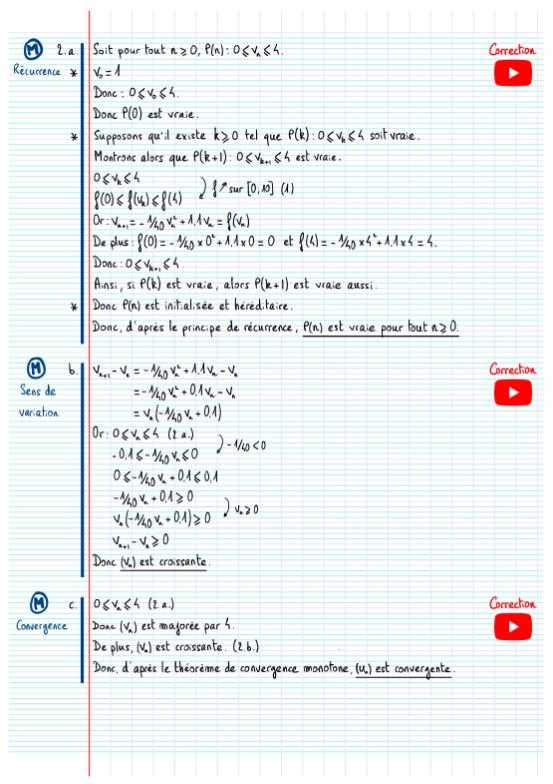 M 2.a. Soit pour tout n ≥ 0, P(n) : 0 ⩽ vₙ ⩽ 4. Correction
Récurrence * v₀ = 1
Donc : 0 ⩽ v₀ ⩽ 4.
Donc P(0) est vraie.
* Supposons qu'il existe k ⩾ 0 tel que P(k) : 0 ⩽ vₖ ⩽ 4 soit vraie.
Montrons alors que P(k+1) : 0 ⩽ vₖ₊₁ ⩽ 4 est vraie.
0 ⩽ vₖ ⩽ 4
f(0) ⩽ f(vₖ) ⩽ f(4) ) f ↗ sur [0,10] (1)
Or : vₙ₊₁ = -1/40 vₙ² + 1,1vₙ = f(vₙ)
De plus : f(0) = -1/40 × 0² + 1,1 × 0 = 0 et f(4) = -1/40 × 4² + 1,1 × 4 = 4.
Donc : 0 ⩽ vₖ₊₁ ⩽ 4.
Ainsi, si P(k) est vraie, alors P(k+1) est vraie aussi.
* Donc P(n) est initialisée et héréditaire.
Donc, d'après le principe de récurrence, P(n) est vraie pour tout n ⩾ 0.
M b. vₙ₊₁ - vₙ = -1/40 vₙ² + 1,1vₙ - vₙ Correction
Sens de variation
= -1/40 vₙ² + 0,1vₙ - vₙ
= vₙ(-1/40 vₙ + 0,1)
Or : 0 ⩽ vₙ ⩽ 4 (2.a.)
-0,1 ⩽ -1/40 vₙ ⩽ 0 ) -1/40 < 0
0 ⩽ -1/40 vₙ + 0,1 ⩽ 0,1
-1/40 vₙ + 0,1 ⩾ 0
vₙ(-1/40 vₙ + 0,1) ⩾ 0 ) vₙ ⩾ 0
vₙ₊₁ - vₙ ⩾ 0
Donc (vₙ) est croissante.
M c. 0 ⩽ vₙ ⩽ 4 (2.a.) Correction
Convergence Donc (vₙ) est majorée par 4.
De plus, (vₙ) est croissante. (2.b.)
Donc, d'après le théorème de convergence monotone, (uₙ) est convergente.